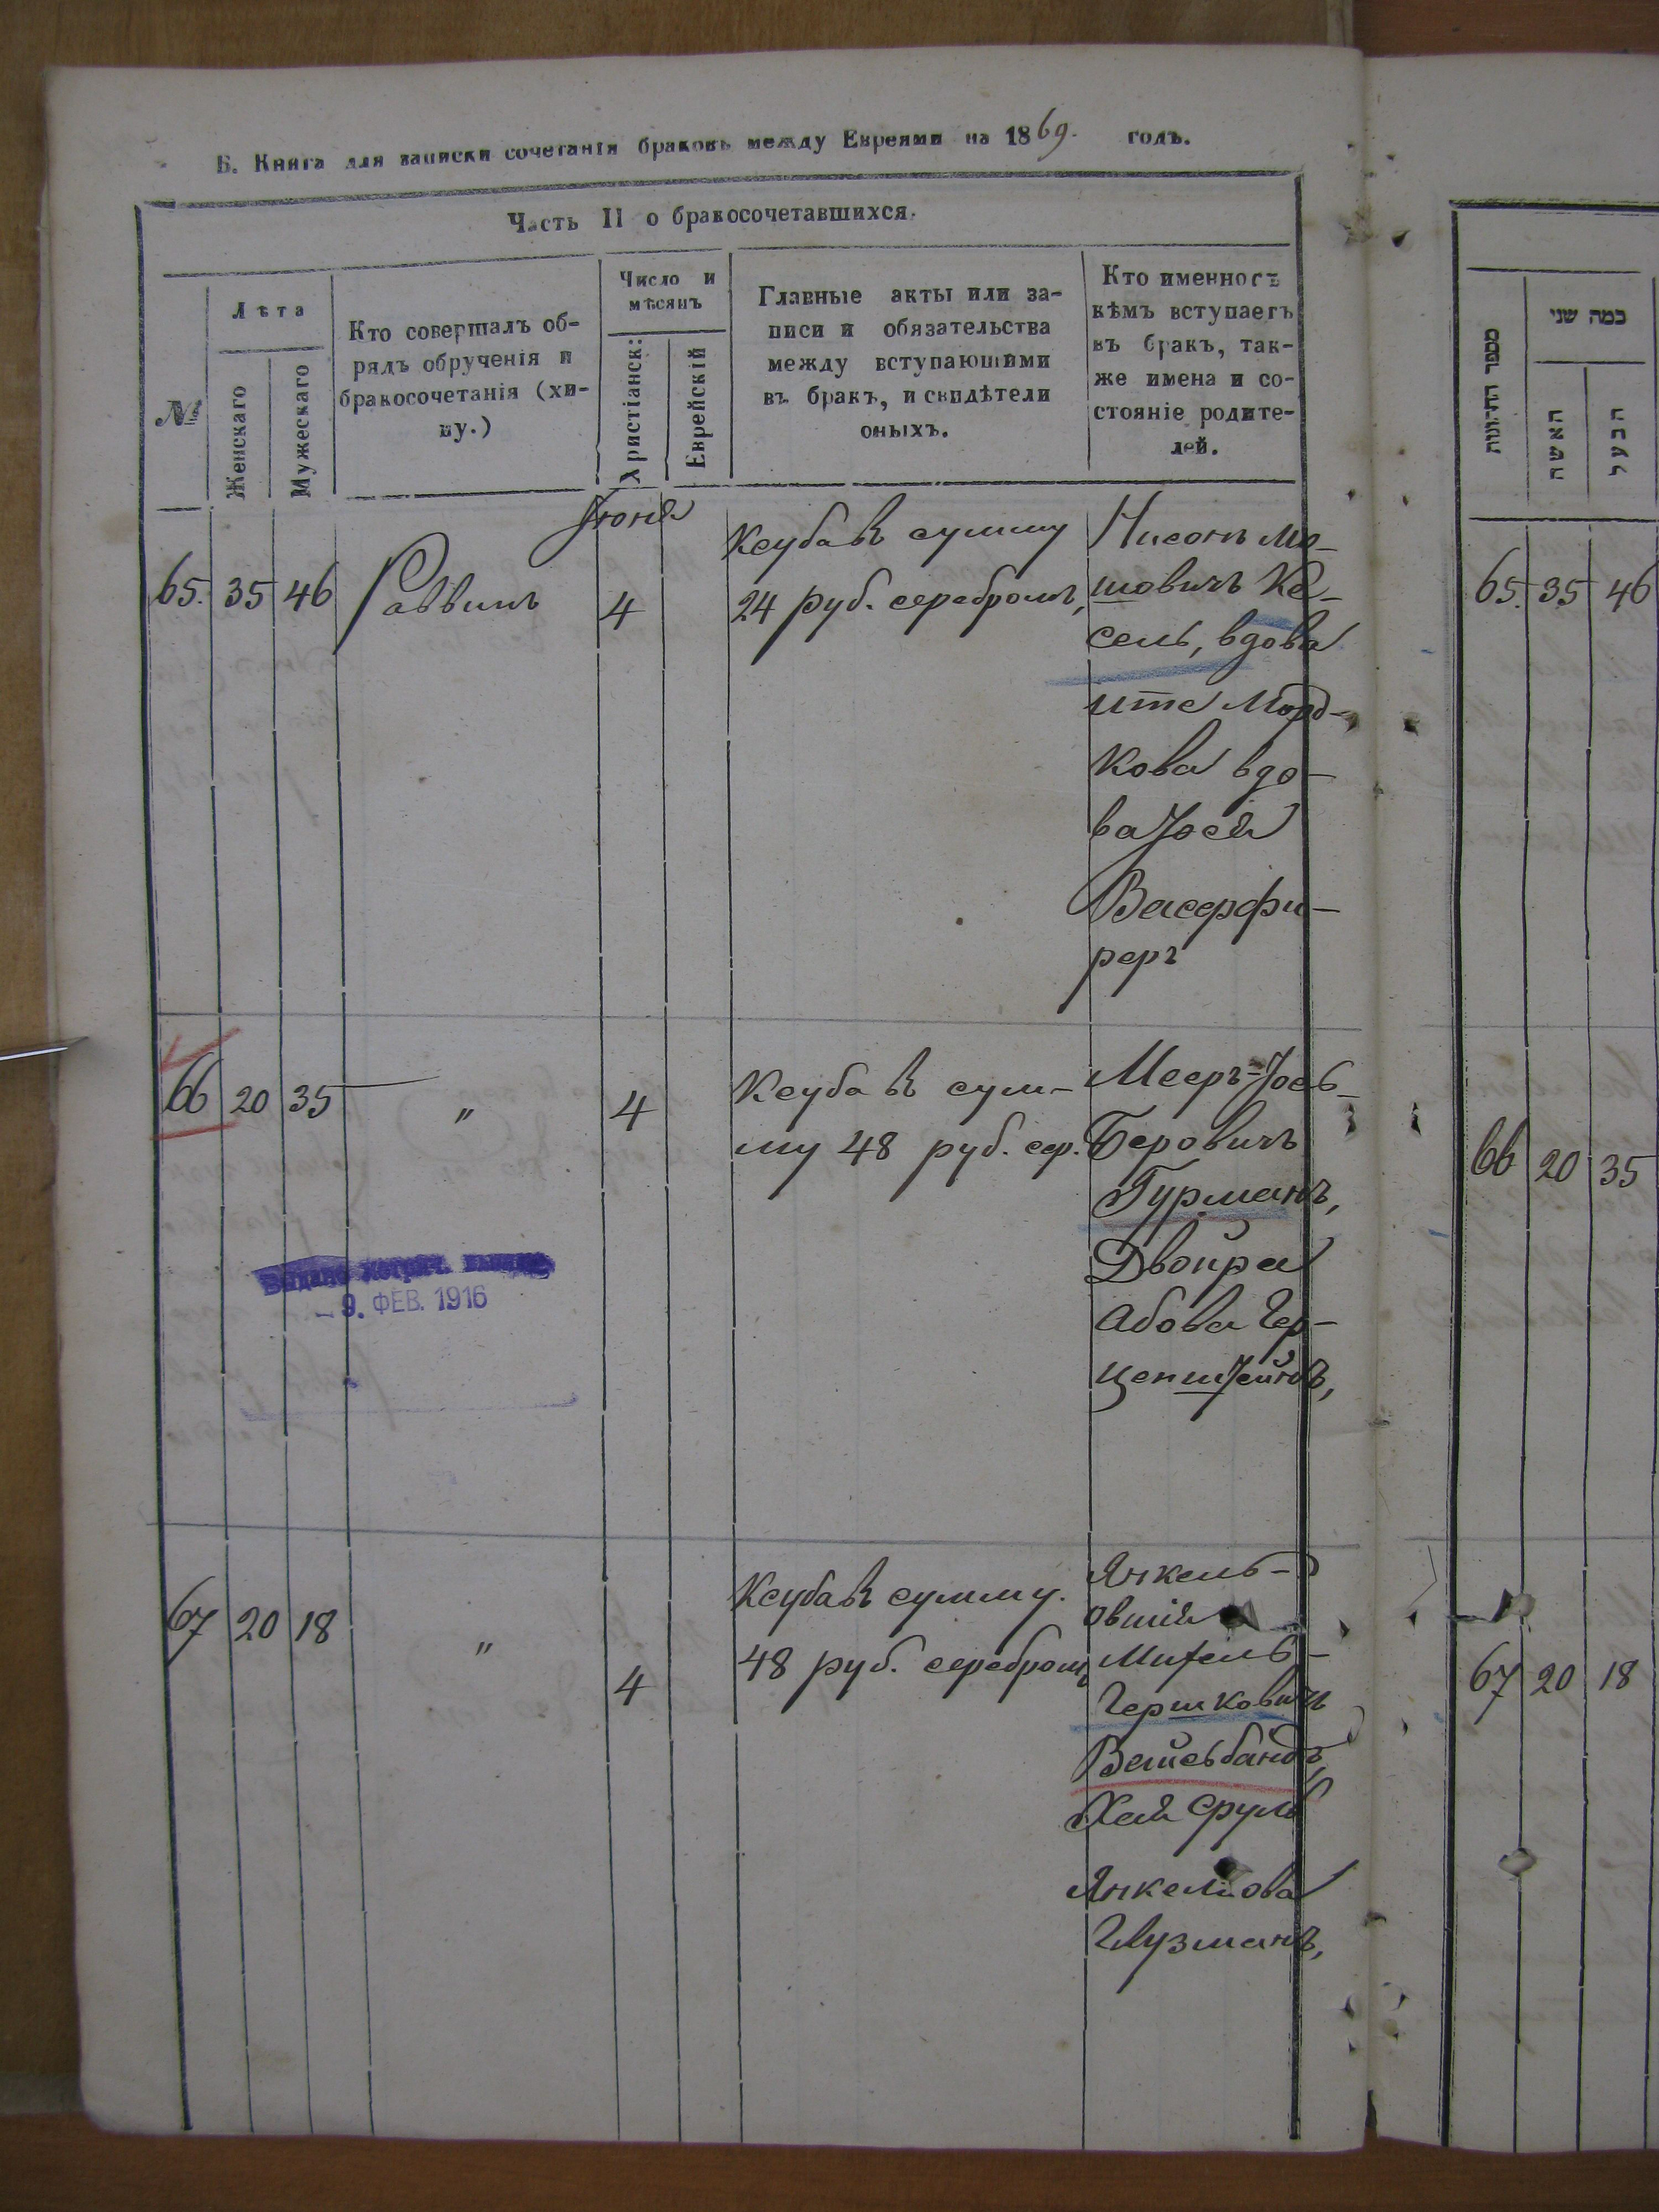 Б. Книга для записки сочетанія браковъ между Евреями на 1869. годъ.
Часть II о бракосочетавшихся.
№
Лѣта
Женскаго
Мужескаго
Кто совершалъ об-
рядъ обрученія и
бракосочетанія (хи-
пу.)
Число и
мѣсяцъ
Христіанск:
Еврейскій
Главные акты или за-
писи и обязательства
между вступающими
въ бракъ, и свидѣтели
оныхъ.
Кто именно съ
кѣмъ вступаетъ
въ бракъ, так-
же имена и со-
стояніе родите-
лей.
Іюня
65. 35 46 Раввинъ 4
Ксуба въ сумму
24 руб. серебромъ,
Нисонъ Мо-
шовичъ Ке-
сель, вдова
Ите Морд-
кова вдо-
ва Іося
Васерфи-
реръ
66 20 35 " 4
Ксуба въ сум-
му 48 руб. сер.
Мееръ-Іось
Беровичъ
Гурманъ,
Двойра
Абова Гер-
ценштейнъ,
Выдано метрич.
9. ФЕВ. 1916
67 20 18 " 4
Ксуба въ сумму.
48 руб. серебромъ
Янкель-
Овшія
Михель-
Гершковичъ
Вайсбандъ,
Хая Сруль
Янкеліова
Глузманъ,
מספר החתונות
כמה שני
האשה
הבעל
65. 35 46
66 20 35
67 20 18